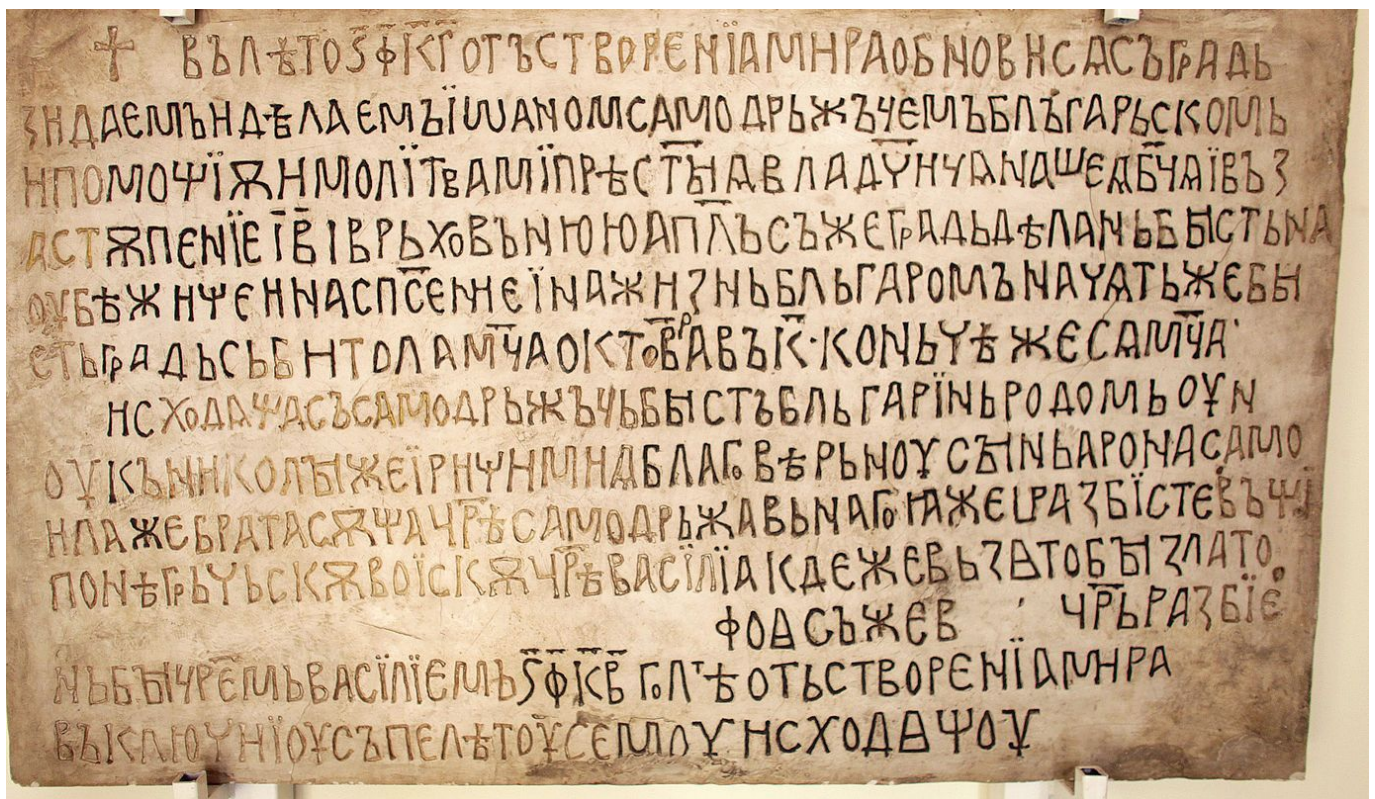 † ВЪЛѢТОЅ҃ФК҃ГОТЪСТВОРЄНЇАМИРАОБНОВИСѦСЪГРАДЬ
ЗИДАЄМЪИДѢЛАЄМЪЇѠАНОМСАМОДРЬЖЪЦЄМЪБЛЪГАРЬСКОМЬ
ИПОМОЩЇѪИМОЛЇТВАМЇПРѢСТ҃ЪІѦВЛАДѴ҃ИЦѦНАШЄѦБ҃ЦѦЇВЪЗ
АСТѪПЄНЇЄІ҃В҃ІВРЬХОВЪНЮЮАПЛ҃ЪСЪЖЄГРАДЬДѢЛАНЬББЫСТЬНА
ОУБѢЖИЩЄИНАСПС҃ЄНИЄЇНАЖИЗНЬБЛЬГАРОМЪНАЧѦТЬЖЄБЫ
СТЬГРАДЬСЬБИТОЛАМЦ҃АОКТОВ҃РАВЪК҃·КОНЬЧѢЖЄСѦМЦ҃А
ИСХОДАЩАСЪСАМОДРЬЖЪЦЬБЫСТЪБЛЬГАРЇНЬРОДОМЬОУН
ОУКЪНИКОЛЪІЖЄЇРИѰИМИѦБЛАГОВѢРЬНОУСЪІНЬАРОНАСАМО
ИЛАЖЄБРАТАСѪЩАЦР҃ѢСАМОДРЬЖАВЬНАГОІАЖЄІРАЗБЇСТЄВЪЩЇ
ПОНѢГРЬЧЬСКѪВОЇСКѪЦР҃ѢВАСЇЛЇАКДЄЖЄВЬЗѦТОБЪІЗЛАТО
ФОѦСЪЖЄВ ЦР҃ЬРАЗБЇЄ
НЬБЪІЦР҃ЄМЬВАСЇЛЇЄМЬЅ҃Ф҃К҃В҃ГОЛѢОТЬСТВОРЄНЇАМИРА
ВЪКЛЮЧИЇОУСЪПЄЛѢТОУСЄМОУИСХОДѦЩОУ